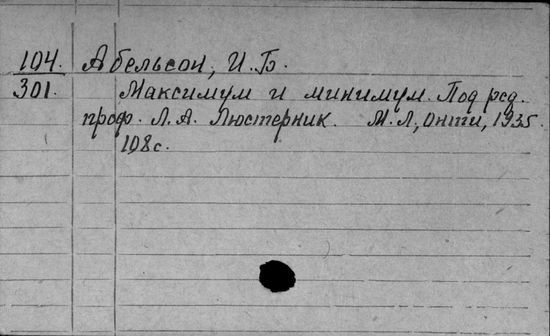 104. Абельсон, И.Б.
301. Максимум и минимум. Под ред.
проф. Л.А. Люстерник. М.Л, Онти, 1935.
108с.